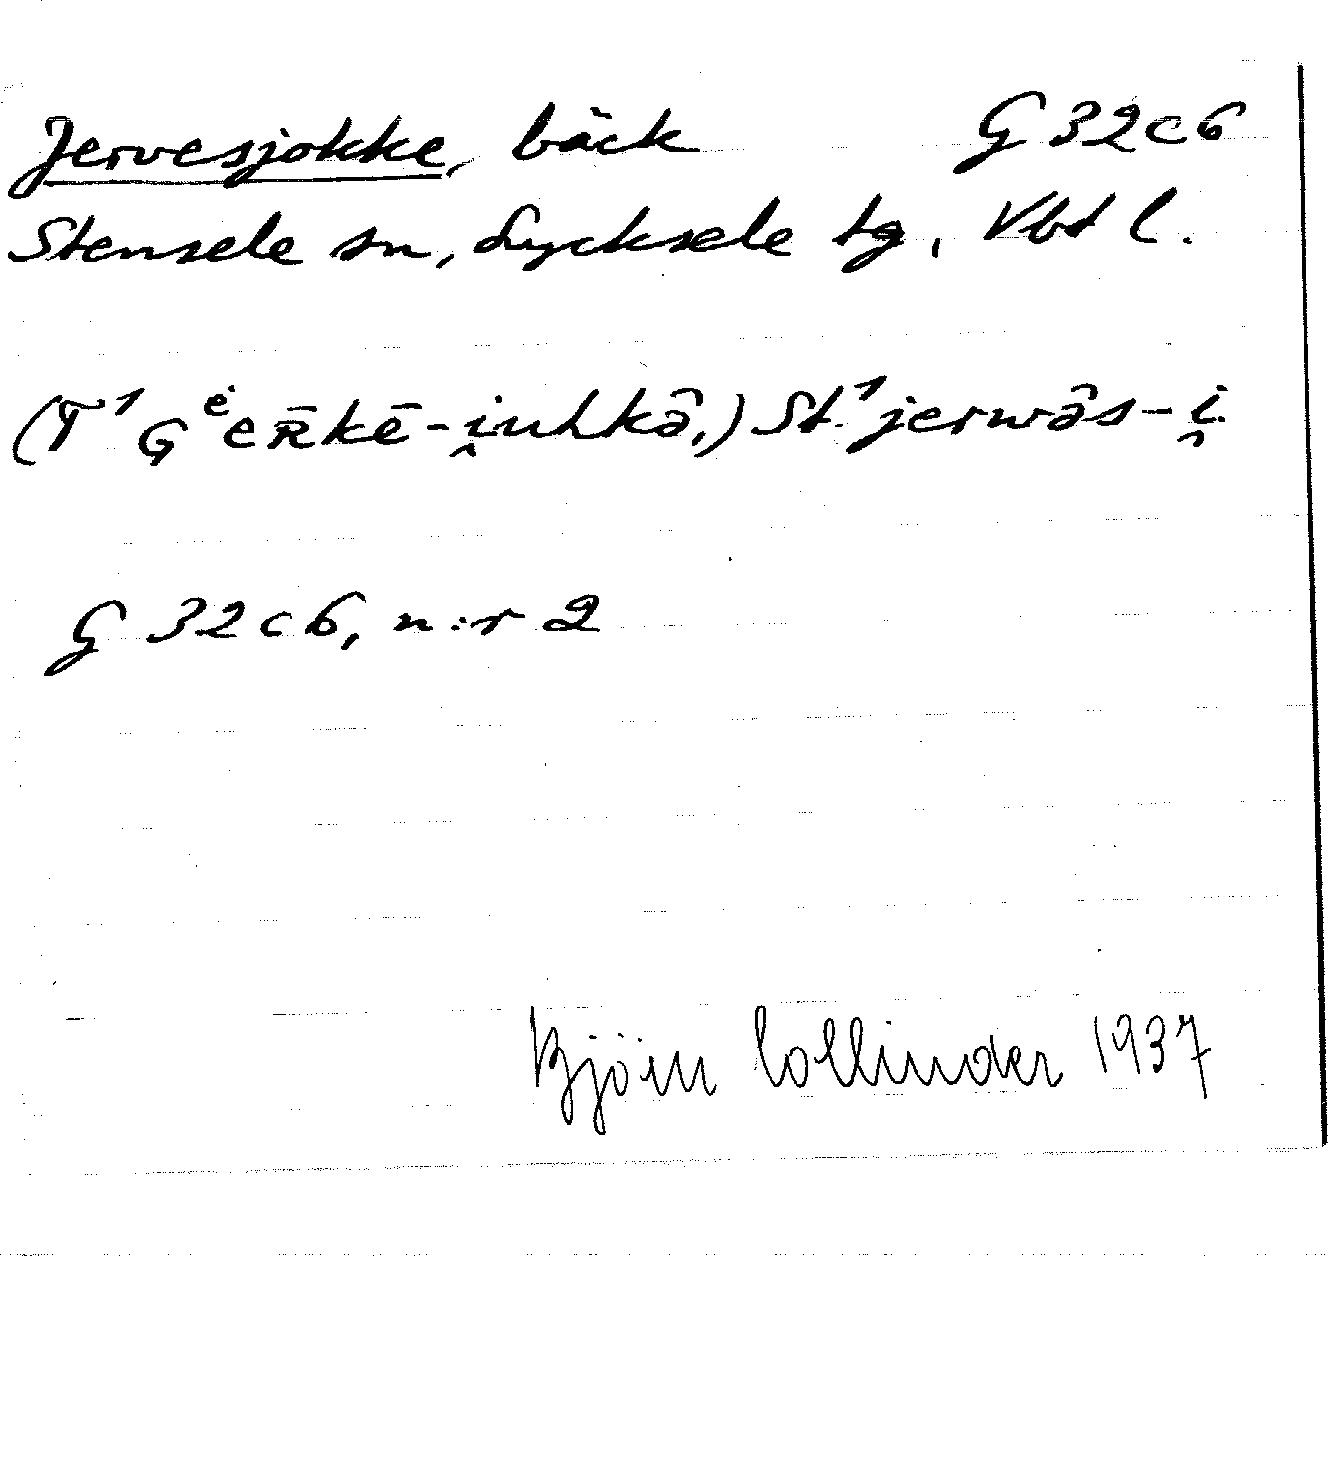 Jervesjokke, bäck G 32 c 6
Stensele sn, Lycksele tg, Vbt l.
(T¹ Gᵉ̇eʀ̄kē-i̯uhkâ,) St.¹ jerwâs-i̯.
G 32 c 6, n:r 2
Björn Collinder 1937